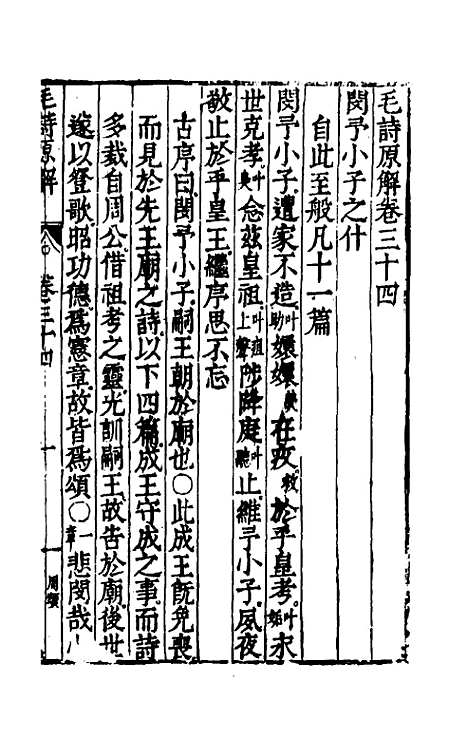 毛詩原解卷三十四
閔予小子之什
自此至般凡十一篇
閔予小子遭家不造叶助嬛嬛在疚救於乎皇考叶永
世克孝叶念茲皇祖叶祖上聲陟降庭叶聽止維予小子夙夜
敬止於乎皇王繼序思不忘
古序曰閔予小子嗣王朝於廟也〇此成王既免喪
而見於先王廟之詩以下四篇成王守成之事而詩
多裁自周公借祖考之靈光訓嗣王故告於廟後世
遂以登歌昭功德為憲章故皆為頌〇一章悲閔哉
毛詩原解 卷三十四 周頌